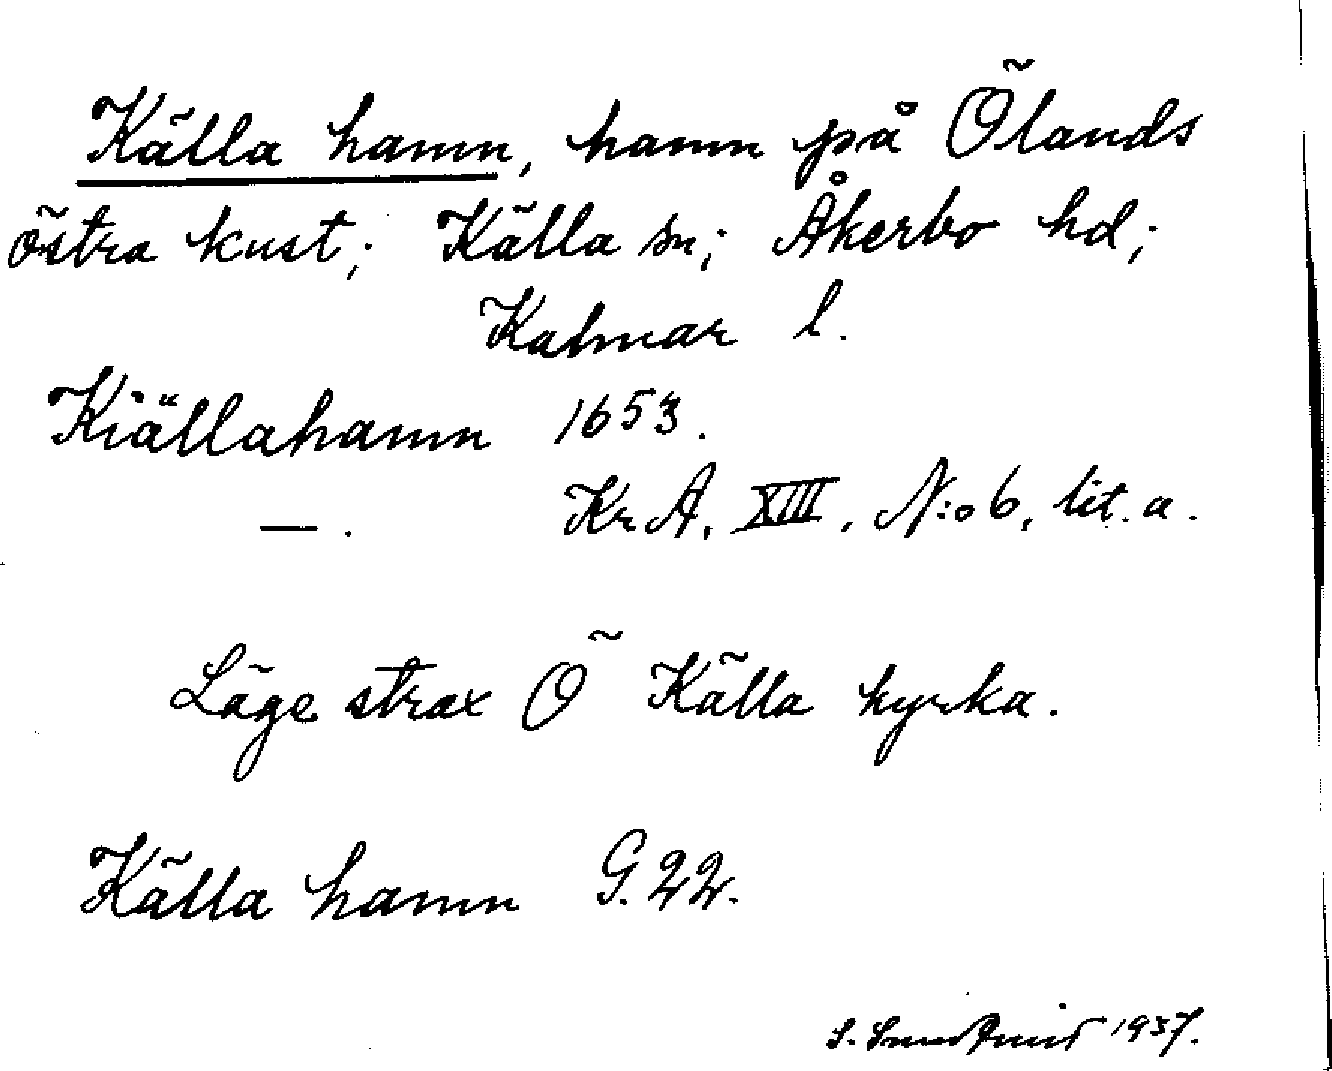 Källa hamn, hamn på Ölands
östra kust; Källa sn; Åkerbo hd;
Kalmar l.
Kiällahamn 1653.
— . Kr. A, XIII, N:o 6, lit. a.
Läge strax Ö Källa kyrka.
Källa hamn G. 22.
S. 1937.